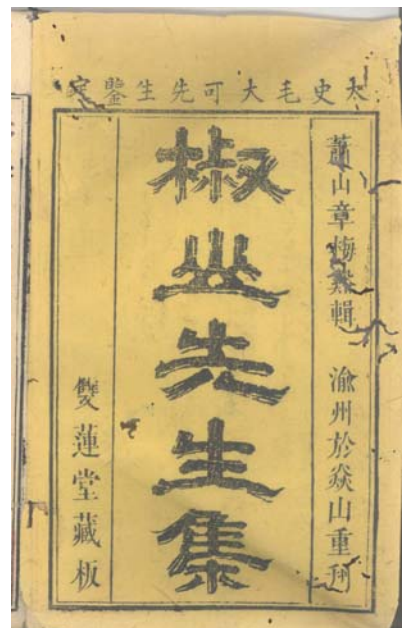 太史毛大可先生鑒定
蕭山章梅谿輯 渝州於焱山重刋
椒山先生集
雙蓮堂藏板